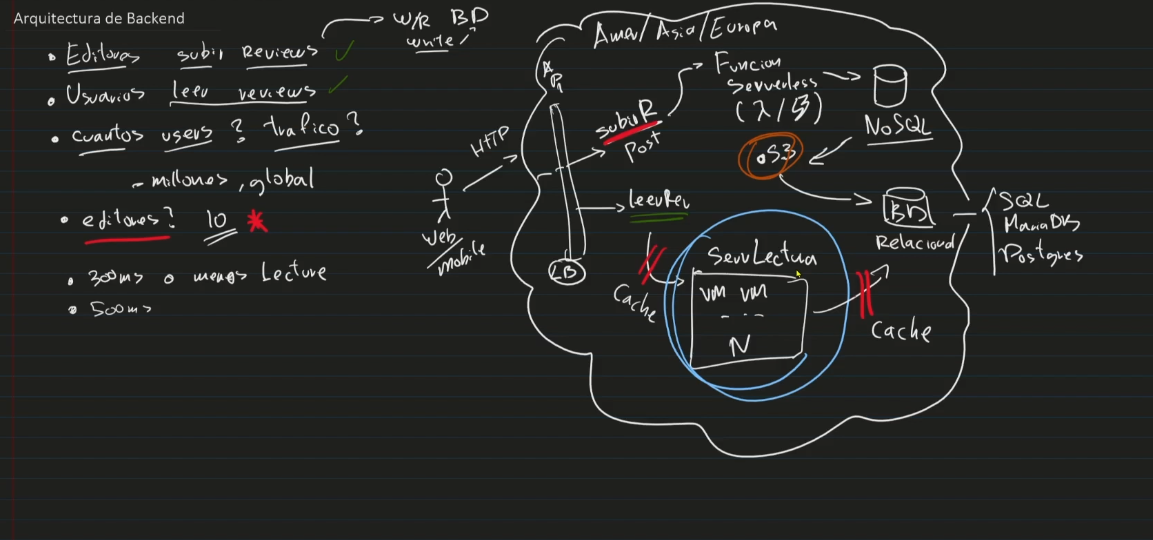 Arquitectura de Backend
• Editores subir Reviews
W/R BD
write
• Usuarios leer reviews
• cuantos users? trafico?
- millones, global
• editores? 10 *
• 300ms o menos Lecture
• 500ms
Amer/Asia/Europa
API
HTTP
Web/
mobile
LB
subirR
Post
leerRev
Funcion
Serverless
NoSQL
S3
BD
Relacional
SQL
MariaDB
Postgres
ServLectura
VM VM
N
Cache
Cache